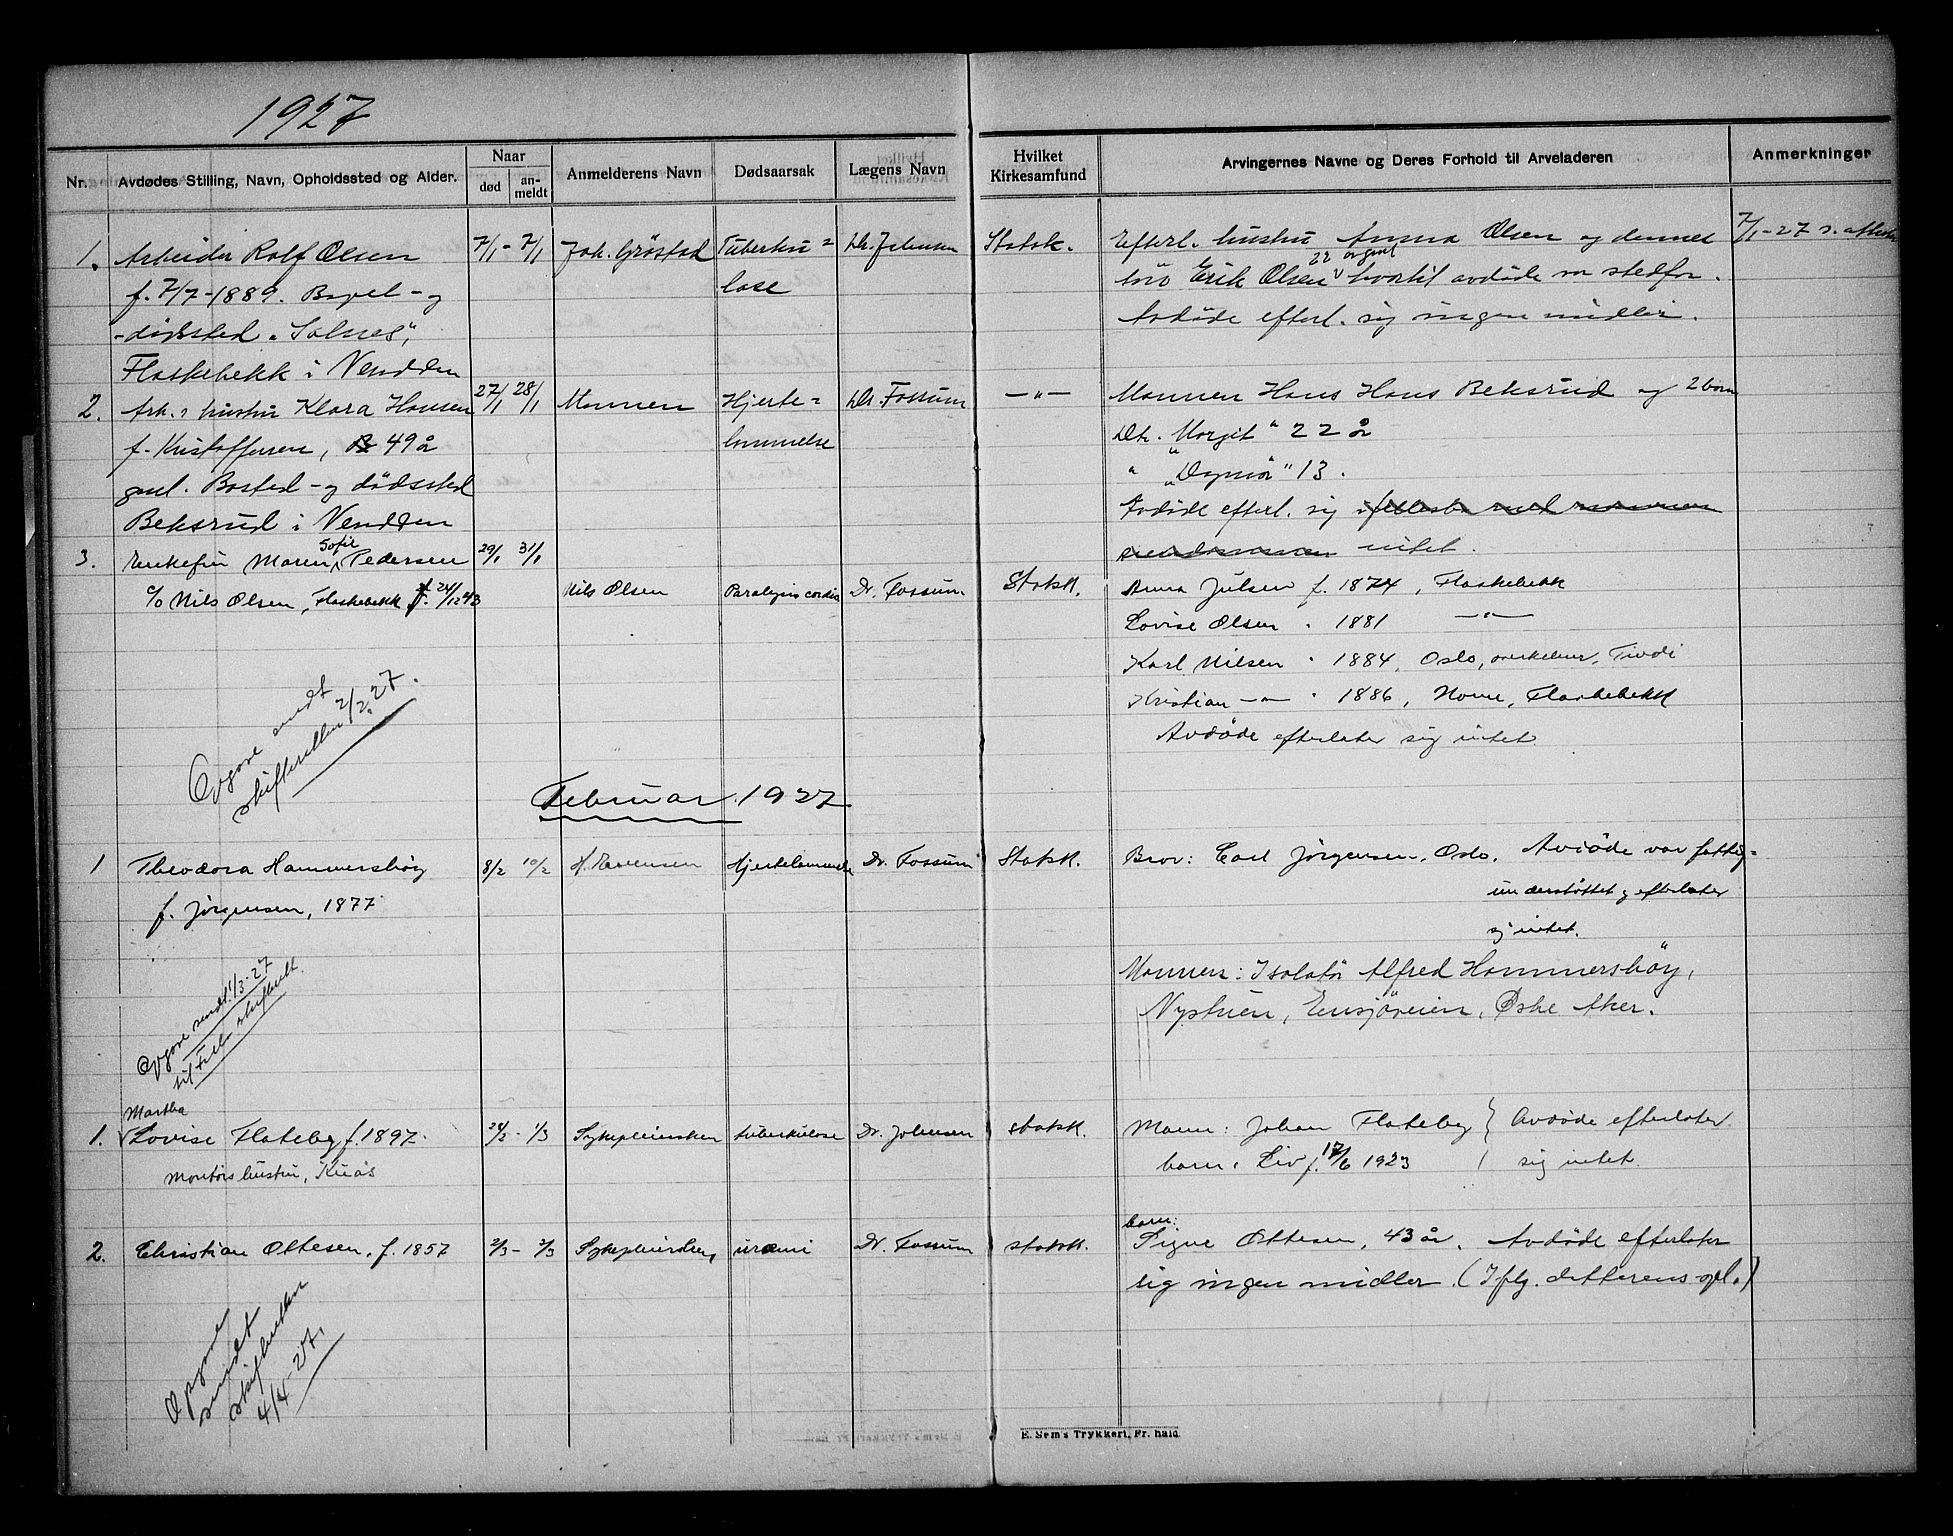 1927
Nr. Avdødes Stilling, Navn, Opholdssted og Alder. Naar død an-meldt Anmelderens Navn Dødsaarsak Lægens Navn Hvilket Kirkesamfund Arvingernes Navne og Deres Forhold til Arveladeren Anmerkninger
1. Arbeider Rolf Olsen 7/1 - 7/1 Joh. Gröstad Tuberku= Dr. Johnsen Statsk. Efterl. hustru Anna Olsen og dennes 7/1-27 s.
22 år gml
f. 7/7-1889. Bopel- og lose sön Erik Olsen hvortil avdøde var stedfar.
-dödssted "Solnes", Avdöde efterl. sig ingen midler.
Flaskebekk i Nesodden
2. Arb.s hustru Klara Hansen 27/1 28/1 Mannen Hjerte= Dr. Fossum —"— Mannen Hans Hans Beksrud og 2 barn
f. Kristoffersen, 49 år lammelse Dtr. Margit " 22 år
gml. Bosted- og dödssted " "Dagmar" 13.
Beksrud i Nesodden Avdöde efterl. sig i fellesbo med mannen
Sofie
3. Enkefru Maren Pedersen 29/1 31/1 eiendommen intet.
c/o Nils Olsen, Flaskebekk f. 24/12 43 Nils Olsen Paralysis cordis Dr. Fossum Statsk. Anna Julsen f. 1874, Flaskebekk
Lovise Olsen " 1881 —"—
Karl Nilsen " 1884, Oslo, Tivoli
Kristian —"— " 1886, Flaskebekk
Avdöde efterlater sig intet
Opgave sendt
skifteretten 2/2.27.
Februar 1927
1 Theodora Hammershöy 8/2 10/2 Hjertelammelse Dr. Fossum Statsk. Bror: Carl Jörgensen, Oslo. Avdöde var fattig=
f. Jörgensen, 1877 understöttet og efterlater
sig intet.
Mannen: Isolatör Alfred Hammershöy,
Nystuen, Ensjöveien, Östre Aker.
Opgave sendt 1/3-27
til
Martha
1. Lovise Flateby f. 1897. 28/2 - 1/3 Sykepleiersken tuberkulose Dr. Johnsen statsk. Mann: Johan Flateby } Avdöde efterlater
montörs hustru, barn: Liv f. 17/6 1923 sig intet.
barn:
2. Christian Ottesen, f. 1857 2/3 - 3/3 Sykepleiersken uræmi Dr. Fossum statsk. Signe Ottesen, 43 år. Avdöde efterlater
sig ingen midler. (Iflg. datterens opl.)
Opgave
sendt
skifteretten
4/4-27.
E. Sem's Trykkeri, Fr. hald